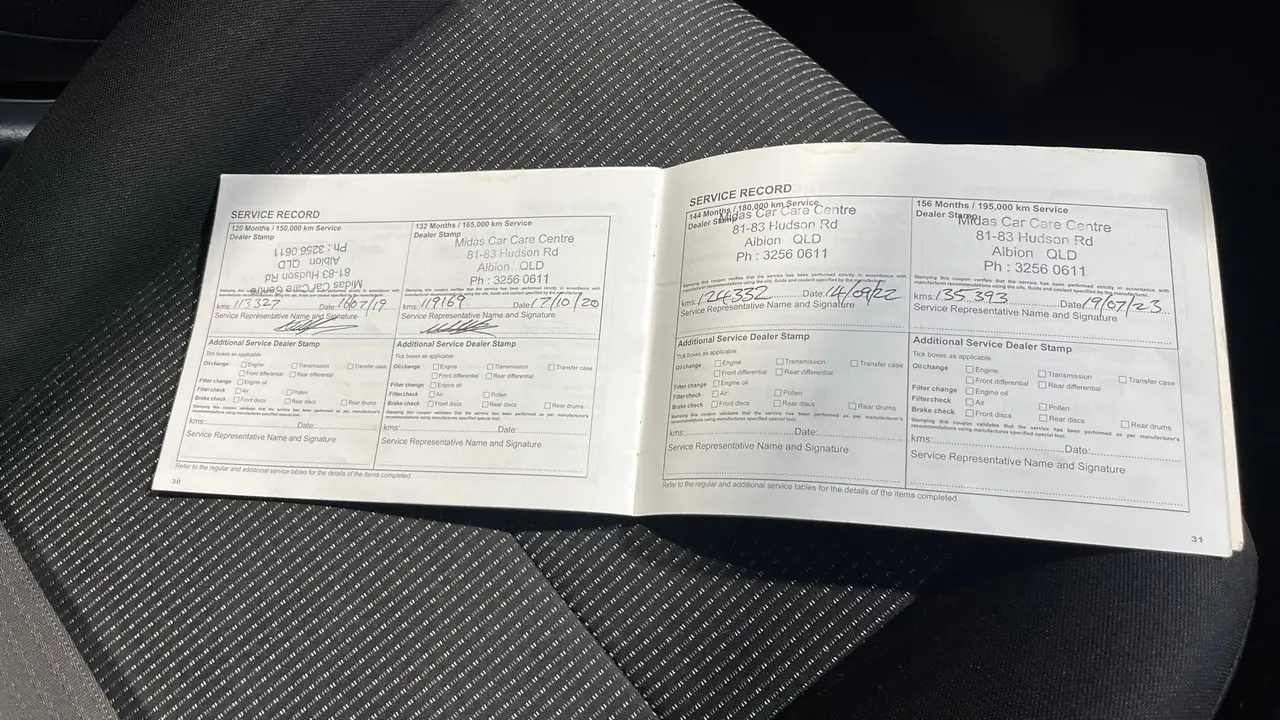 SERVICE RECORD
120 Months / 150,000 km Service
Dealer Stamp
Midas Car Care Centre
81-83 Hudson Rd
Albion QLD
Ph : 3256 0611
Stamping this coupon verifies that the service has been performed strictly in accordance with
manufacturer recommendations using the oils, fluids and coolant specified by the manufacturer.
kms: 113327 Date: 16/07/19
Service Representative Name and Signature
Additional Service Dealer Stamp
Tick boxes as applicable
Oil change Engine Transmission Transfer case
Front differential Rear differential
Filter change Engine oil
Filter check Air Pollen
Brake check Front discs Rear discs Rear drums
Stamping this coupon validates that the service has been performed as per manufacturer's
recommendations using manufactures specified special tool.
kms: Date:
Service Representative Name and Signature
132 Months / 165,000 km Service
Dealer Stamp
Midas Car Care Centre
81-83 Hudson Rd
Albion QLD
Ph : 3256 0611
Stamping this coupon verifies that the service has been performed strictly in accordance with
manufacturer recommendations using the oils, fluids and coolant specified by the manufacturer.
kms: 119169 Date: 17/10/20
Service Representative Name and Signature
Additional Service Dealer Stamp
Tick boxes as applicable
Oil change Engine Transmission Transfer case
Front differential Rear differential
Filter change Engine oil
Filter check Air Pollen
Brake check Front discs Rear discs Rear drums
Stamping this coupon validates that the service has been performed as per manufacturer's
recommendations using manufactures specified special tool.
kms: Date:
Service Representative Name and Signature
Refer to the regular and additional service tables for the details of the items completed
30
SERVICE RECORD
144 Months / 180,000 km Service
Dealer Stamp
Midas Car Care Centre
81-83 Hudson Rd
Albion QLD
Ph : 3256 0611
Stamping this coupon verifies that the service has been performed strictly in accordance with
manufacturer recommendations using the oils, fluids and coolant specified by the manufacturer.
kms: 124332 Date: 14/09/22
Service Representative Name and Signature
Additional Service Dealer Stamp
Tick boxes as applicable
Oil change Engine Transmission Transfer case
Front differential Rear differential
Filter change Engine oil
Filter check Air Pollen
Brake check Front discs Rear discs Rear drums
Stamping this coupon validates that the service has been performed as per manufacturer's
recommendations using manufactures specified special tool.
kms: Date:
Service Representative Name and Signature
156 Months / 195,000 km Service
Dealer Stamp
Midas Car Care Centre
81-83 Hudson Rd
Albion QLD
Ph : 3256 0611
Stamping this coupon verifies that the service has been performed strictly in accordance with
manufacturer recommendations using the oils, fluids and coolant specified by the manufacturer.
kms: 135 393 Date 19/07/23
Service Representative Name and Signature
Additional Service Dealer Stamp
Tick boxes as applicable
Oil change Engine Transmission Transfer case
Front differential Rear differential
Filter change Engine oil
Filter check Air Pollen
Brake check Front discs Rear discs Rear drums
Stamping this coupon validates that the service has been performed as per manufacturer's
recommendations using manufactures specified special tool.
kms: Date:
Service Representative Name and Signature
Refer to the regular and additional service tables for the details of the items completed
31